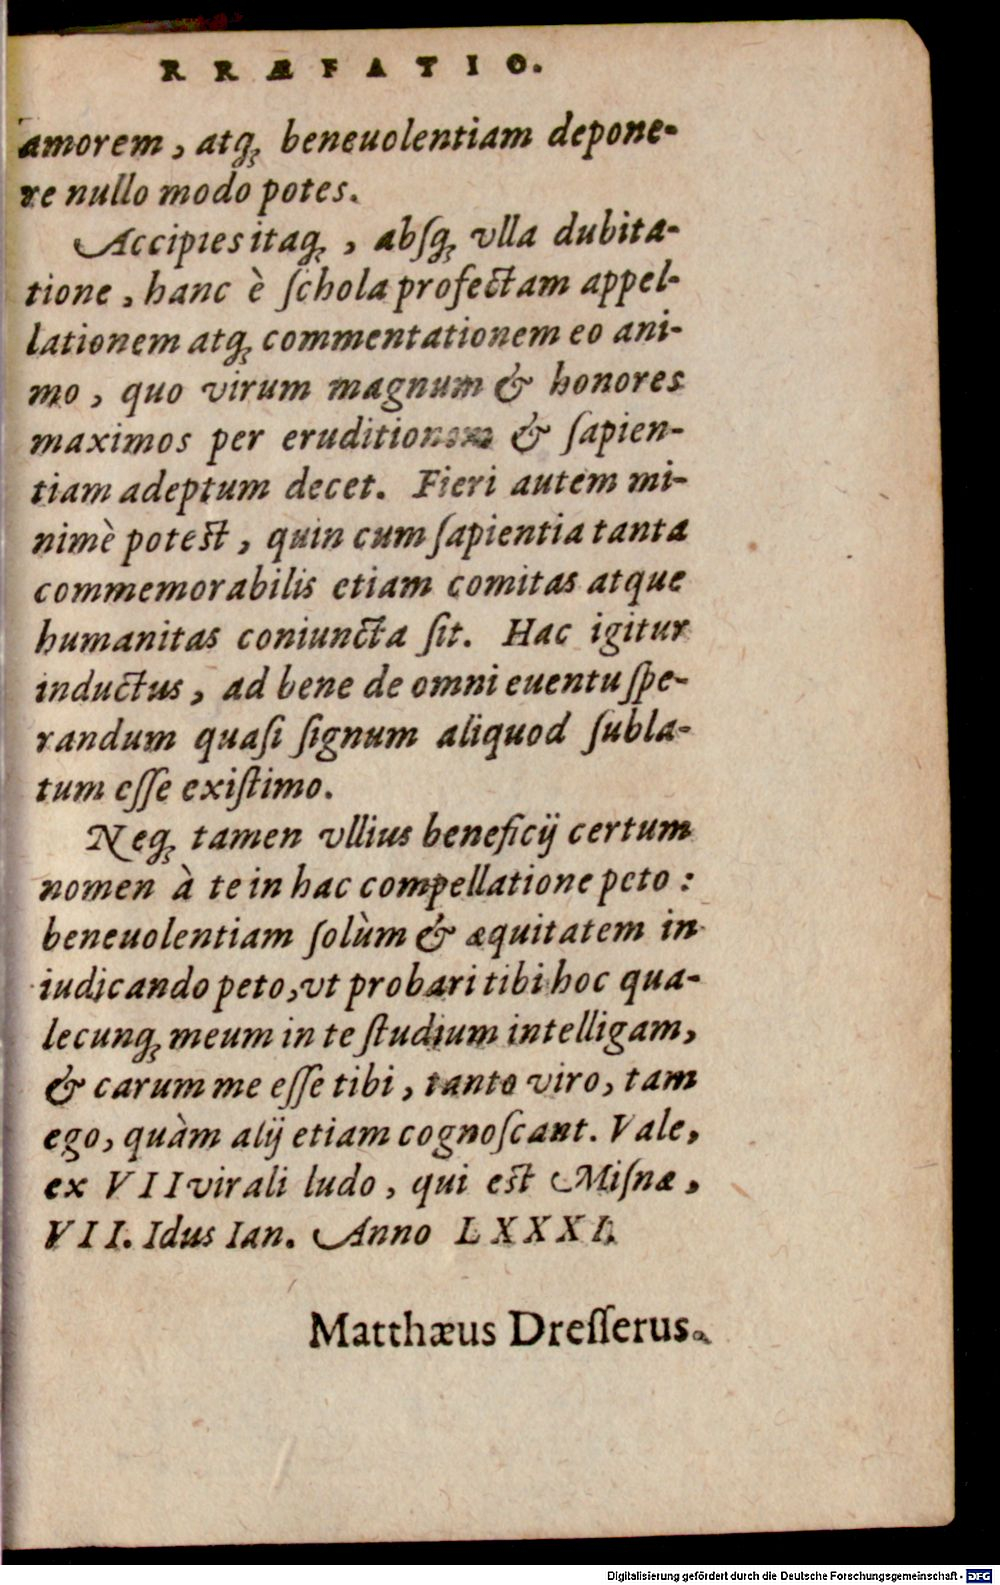 RRÆFATIO.
amorem, atq́ꝫ beneuolentiam depone-
re nullo modo potes.
Accipies itaq́ꝫ, absq́ꝫ vlla dubita-
tione, hanc è ſchola profectam appel-
lationem atq́ꝫ commentationem eo ani-
mo, quo virum magnum & honores
maximos per eruditionem & ſapien-
tiam adeptum decet. Fieri autem mi-
nimè poteſt, quin cum ſapientia tanta
commemorabilis etiam comitas atque
humanitas coniuncta ſit. Hac igitur
inductus, ad bene de omni euentu ſpe-
randum quaſi ſignum aliquod ſubla-
tum eſſe exiſtimo.
Neq́ꝫ tamen vllius beneficij certum
nomen à te in hac compellatione peto:
beneuolentiam ſolùm & æquitatem in
iudicando peto, vt probari tibi hoc qua-
lecunq́ꝫ meum in te ſtudium intelligam,
& carum me eſſe tibi, tanto viro, tam
ego, quàm alij etiam cognoſcant. Vale,
ex VIIvirali ludo, qui eſt Miſnæ,
VII. Idus Ian. Anno LXXXI.
Matthæus Dreſſerus.
Digitalisierung gefördert durch die Deutsche Forschungsgemeinschaft - DFG